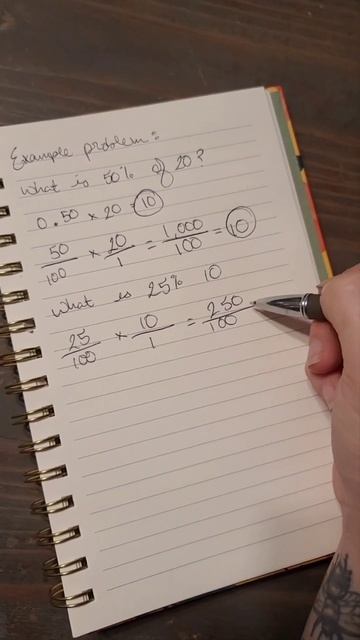 Example problem:
What is 50% of 20?
0.50 × 20 = 10
50/100 × 20/1 = 1,000/100 = 10
What is 25% 10
25/100 × 10/1 = 250/100